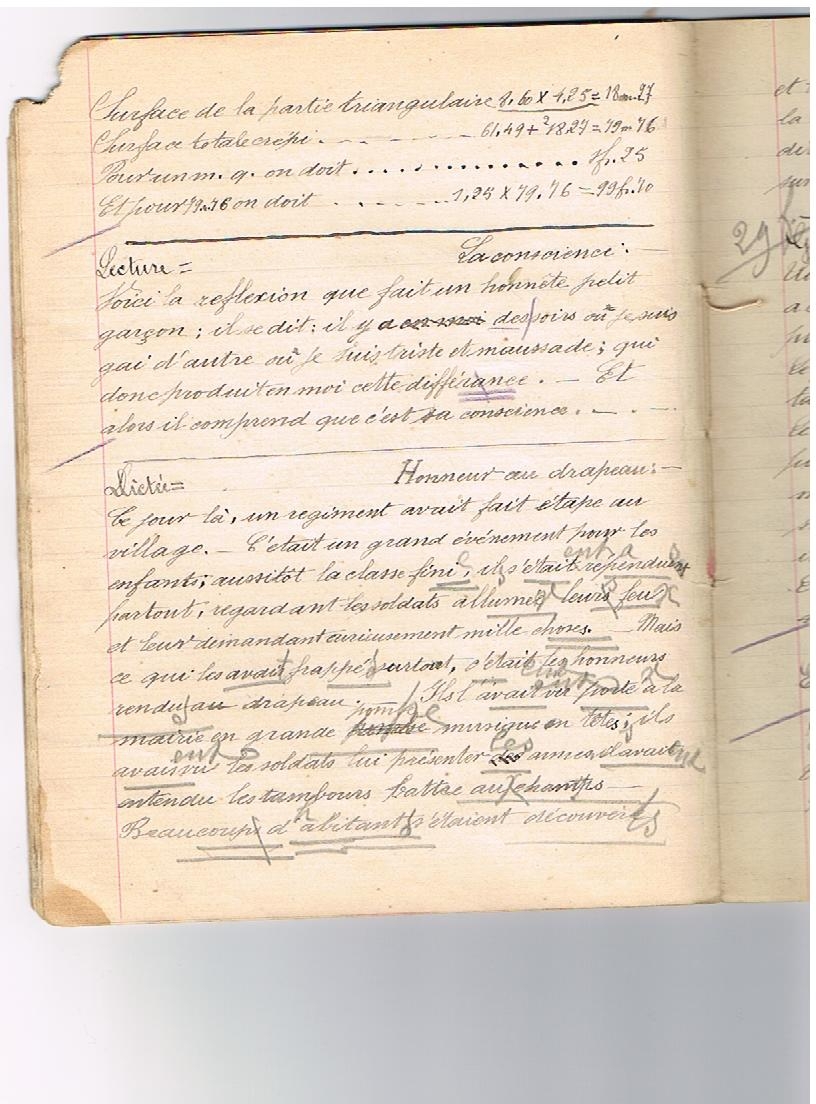 Surface de la partie triangulaire 8,60 X 4,25 = 18m27
Surface totale crépi. 61,49 + 18.27 = 79m76
Pour un m. q. on doit 1f.25
Et pour 79m76 on doit 1,25 X 79.76 = 99f.70
Lecture = La conscience : —
Voici la reflexion que fait un honnête petit
garçon ; il se dit : il y a en moi des soirs où je suis
gai d'autre où je suis triste et maussade ; qui
donc produit en moi cette différance. — Et
alors il comprend que c'est sa conscience. — . —
Dictée = Honneur au drapeau : —
Ce jour là, un regiment avait fait étape au
village. — C'était un grand événement pour les
enfants ; aussitôt la classe fini, il s'était rependu
partout, regardant les soldats allumer leurs feux
et leur demandant curieusement mille choses. — Mais
ce qui les avait frappé surtout, c'était les honneurs
rendu au drapeau. Ils l'avait vu porté à la
mairie en grande pompe musique en têtes ; ils
avais vu les soldats lui présenter les armes, il avait
entendu les tambours battre aux champs —
Beaucoups d'abitants s'étaient découverts
29